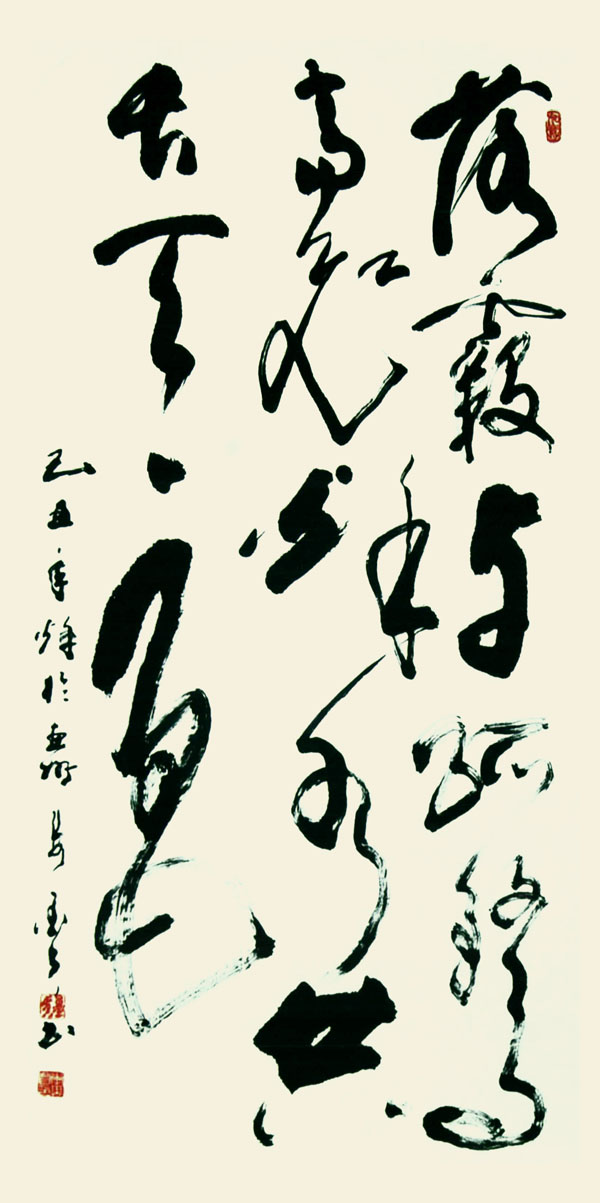 落霞与孤鹜
齐飞秋水共
长天一色
己丑年 於 书